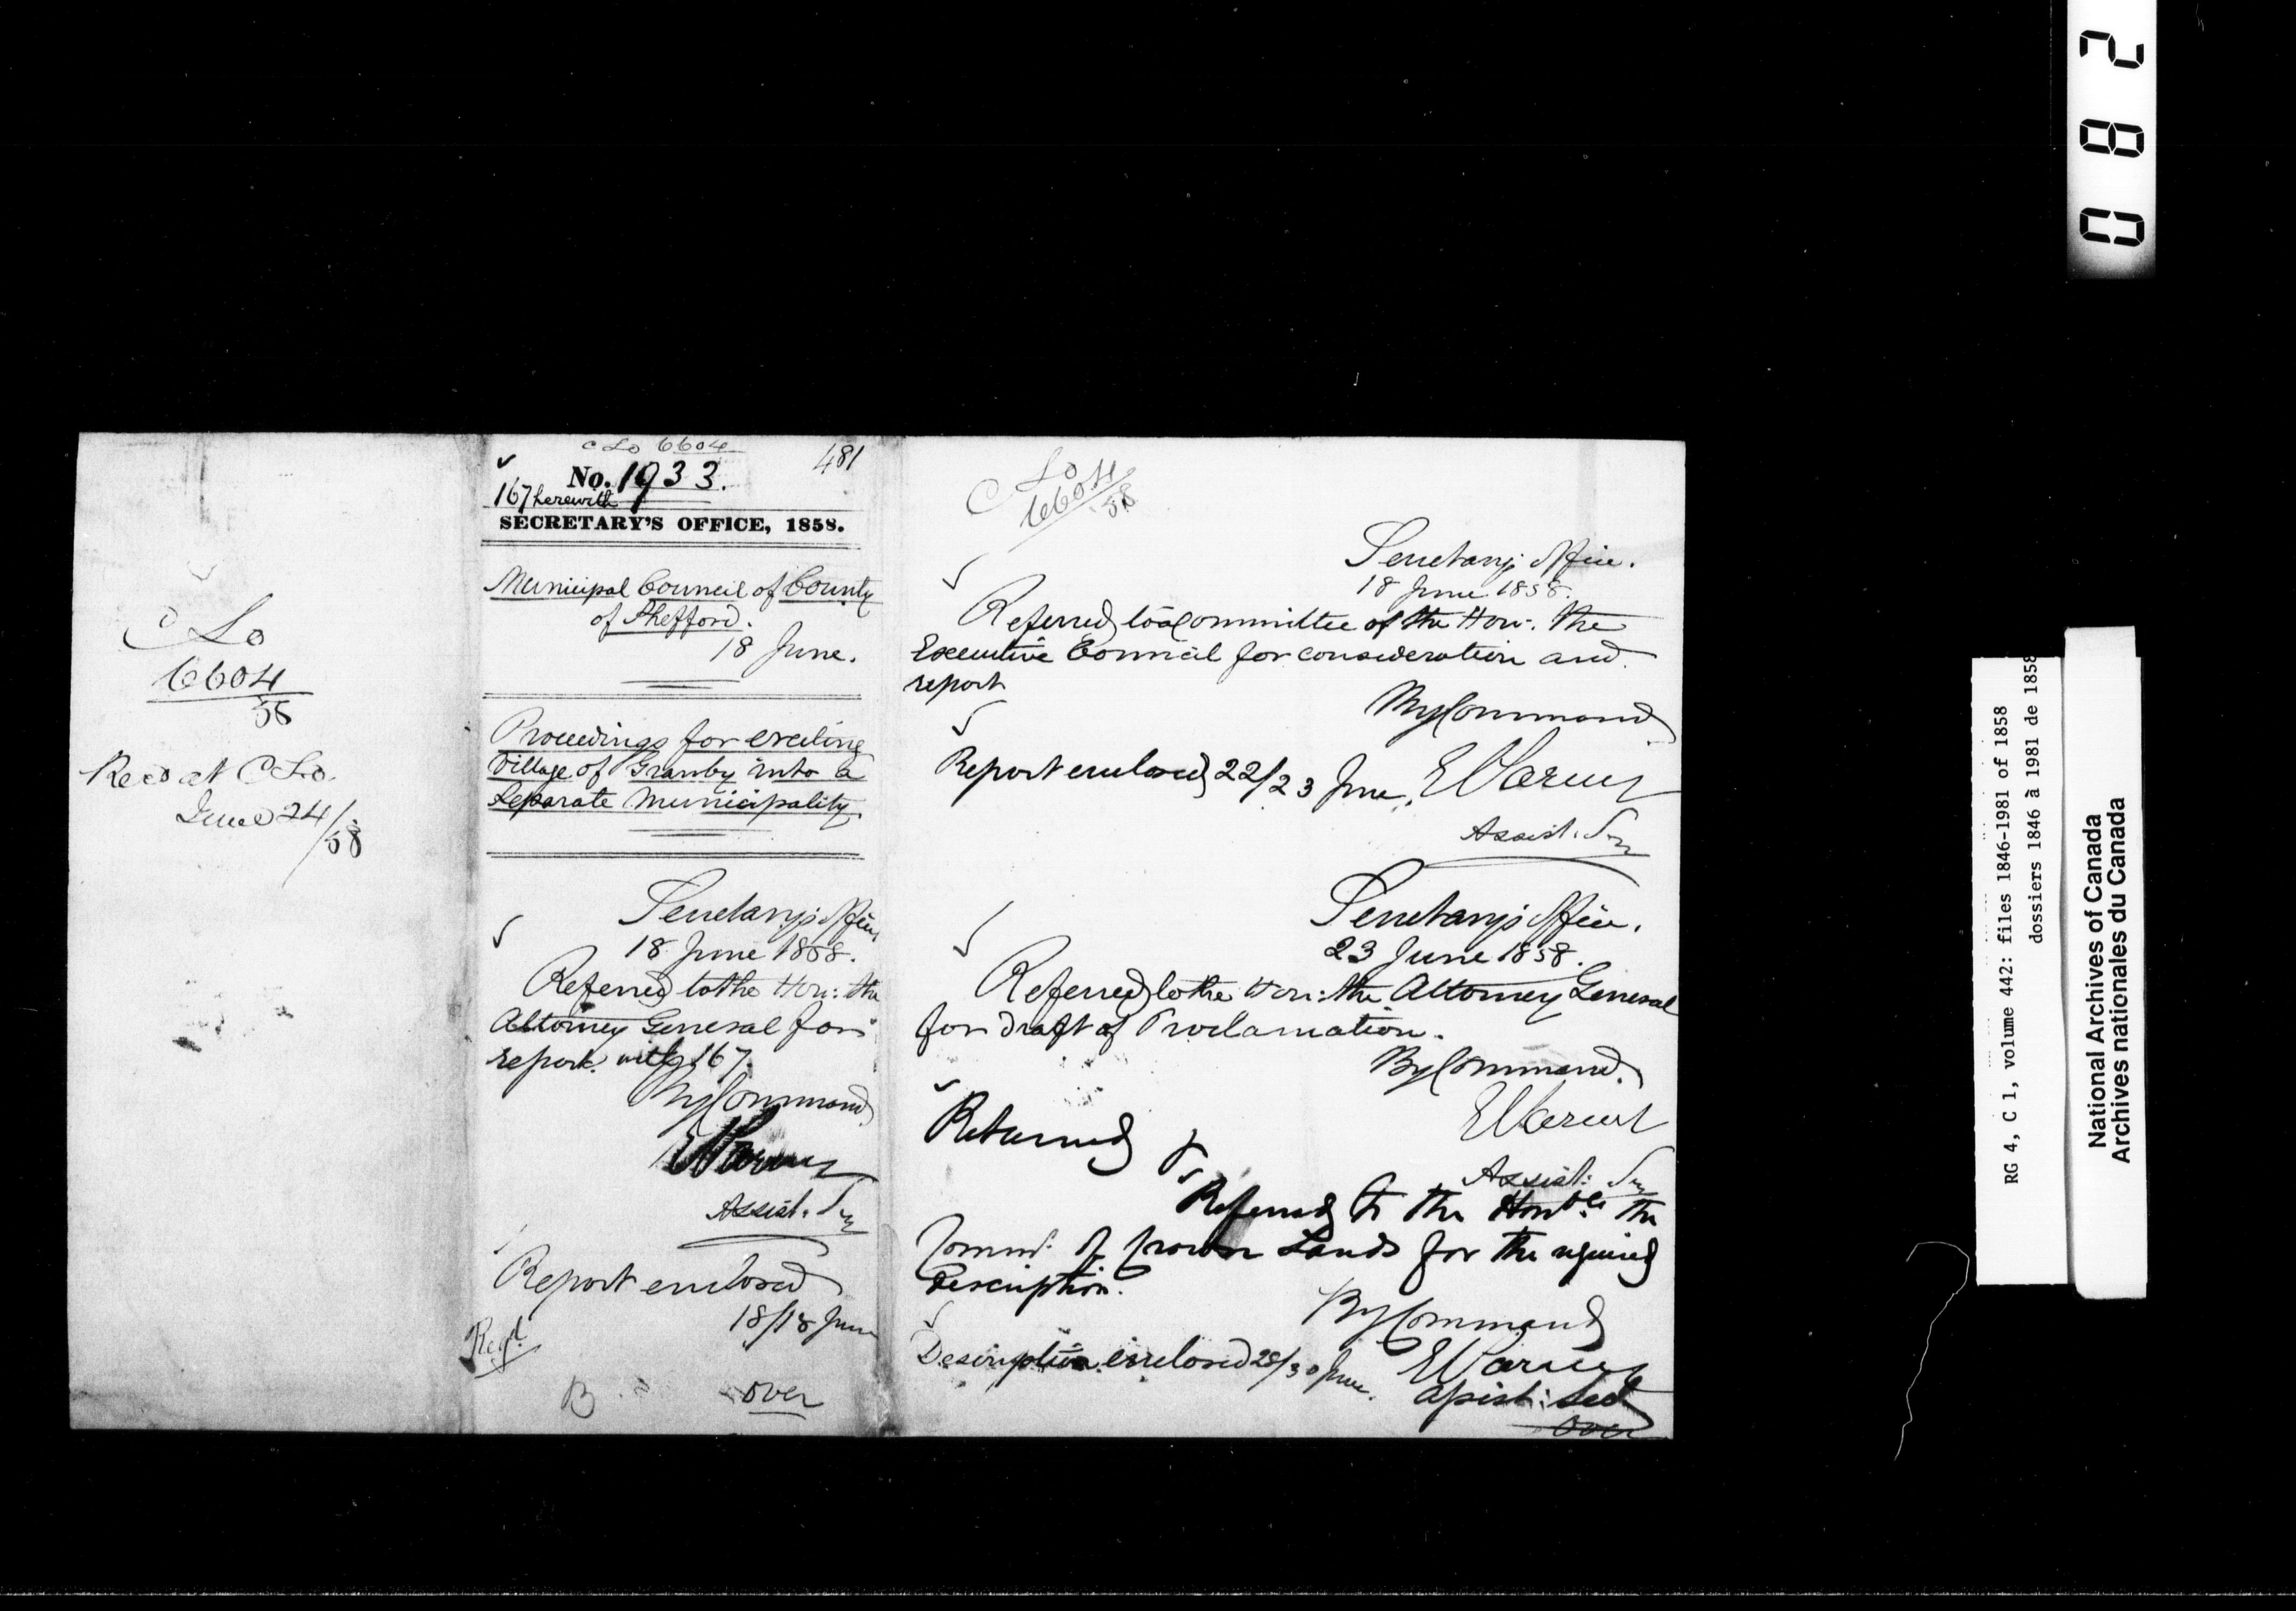 C Lo
6604
58
Recd at C Lo.
June 24/58
C Lo 6604
481
No. 1933.
167 herewith
SECRETARY'S OFFICE, 1858.
Municipal Council of County
of Shefford.
18 June.
Proceedings for erecting
Village of Granby into a
Separate Municipality
Secretary's Office
18 June 1858.
Referred to the Hon: the
Attorney General for
report with 167.
By Command
E Parent
Assist. Sec
Report enclosed
18/18 June
Regd
B
over
C Lo
6604
58
Secretary's Office.
18 June 1858.
Referred to a Committee of the Hon: the
Executive Council for consideration and
report
By Command
Report enclosed 22/23 June. E Parent
Assist. Sec
Secretary's Office.
23 June 1858.
Referred to the Hon: the Attorney General
for draft of Proclamation.
By Command.
E Parent
Assist: Sec
Returned &
Referred to the Honble the
Commr. of Crown Lands for the required
Description.
By Command
Description enclosed 28/30 June. E Parent
Assist: Sec
over
082
RG 4, C 1, volume 442: files 1846-1981 of 1858
dossiers 1846 à 1981 de 1858
National Archives of Canada
Archives nationales du Canada